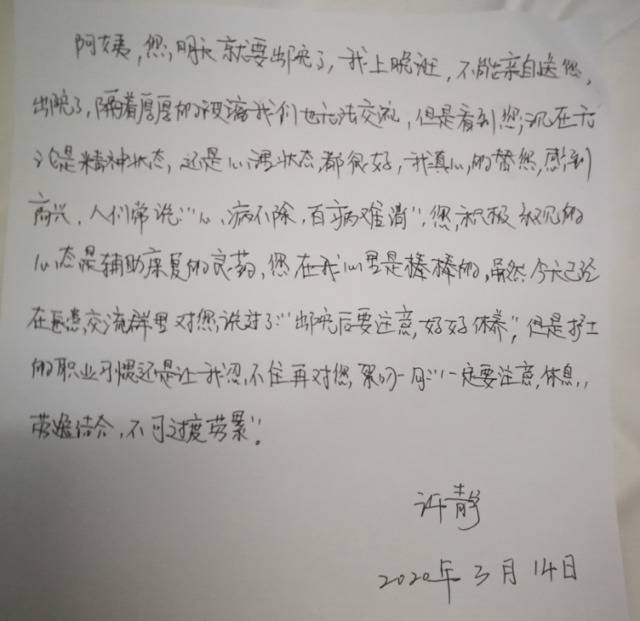 阿姨,您,明天就要出院了,我上晚班,不能亲自送您,
出院了,隔着厚厚的玻璃我们也无法交流,但是看到您,现在无
论是精神状态,还是心理状态,都很好,我真心,的替您,感到
高兴,人们常说:"心,病不除,百病难消",您,积极乐观的
心态是辅助康复的良药,您在我心里是棒棒的,虽然今天已经
在医患,交流群里对您,说过了:"出院后要注意,好好休养",但是护士
的职业习惯还是让我忍,不住再对您,一句:"一定要注意,休息,,
劳逸结合,不可过度劳累"。
许静
2020年3月14日